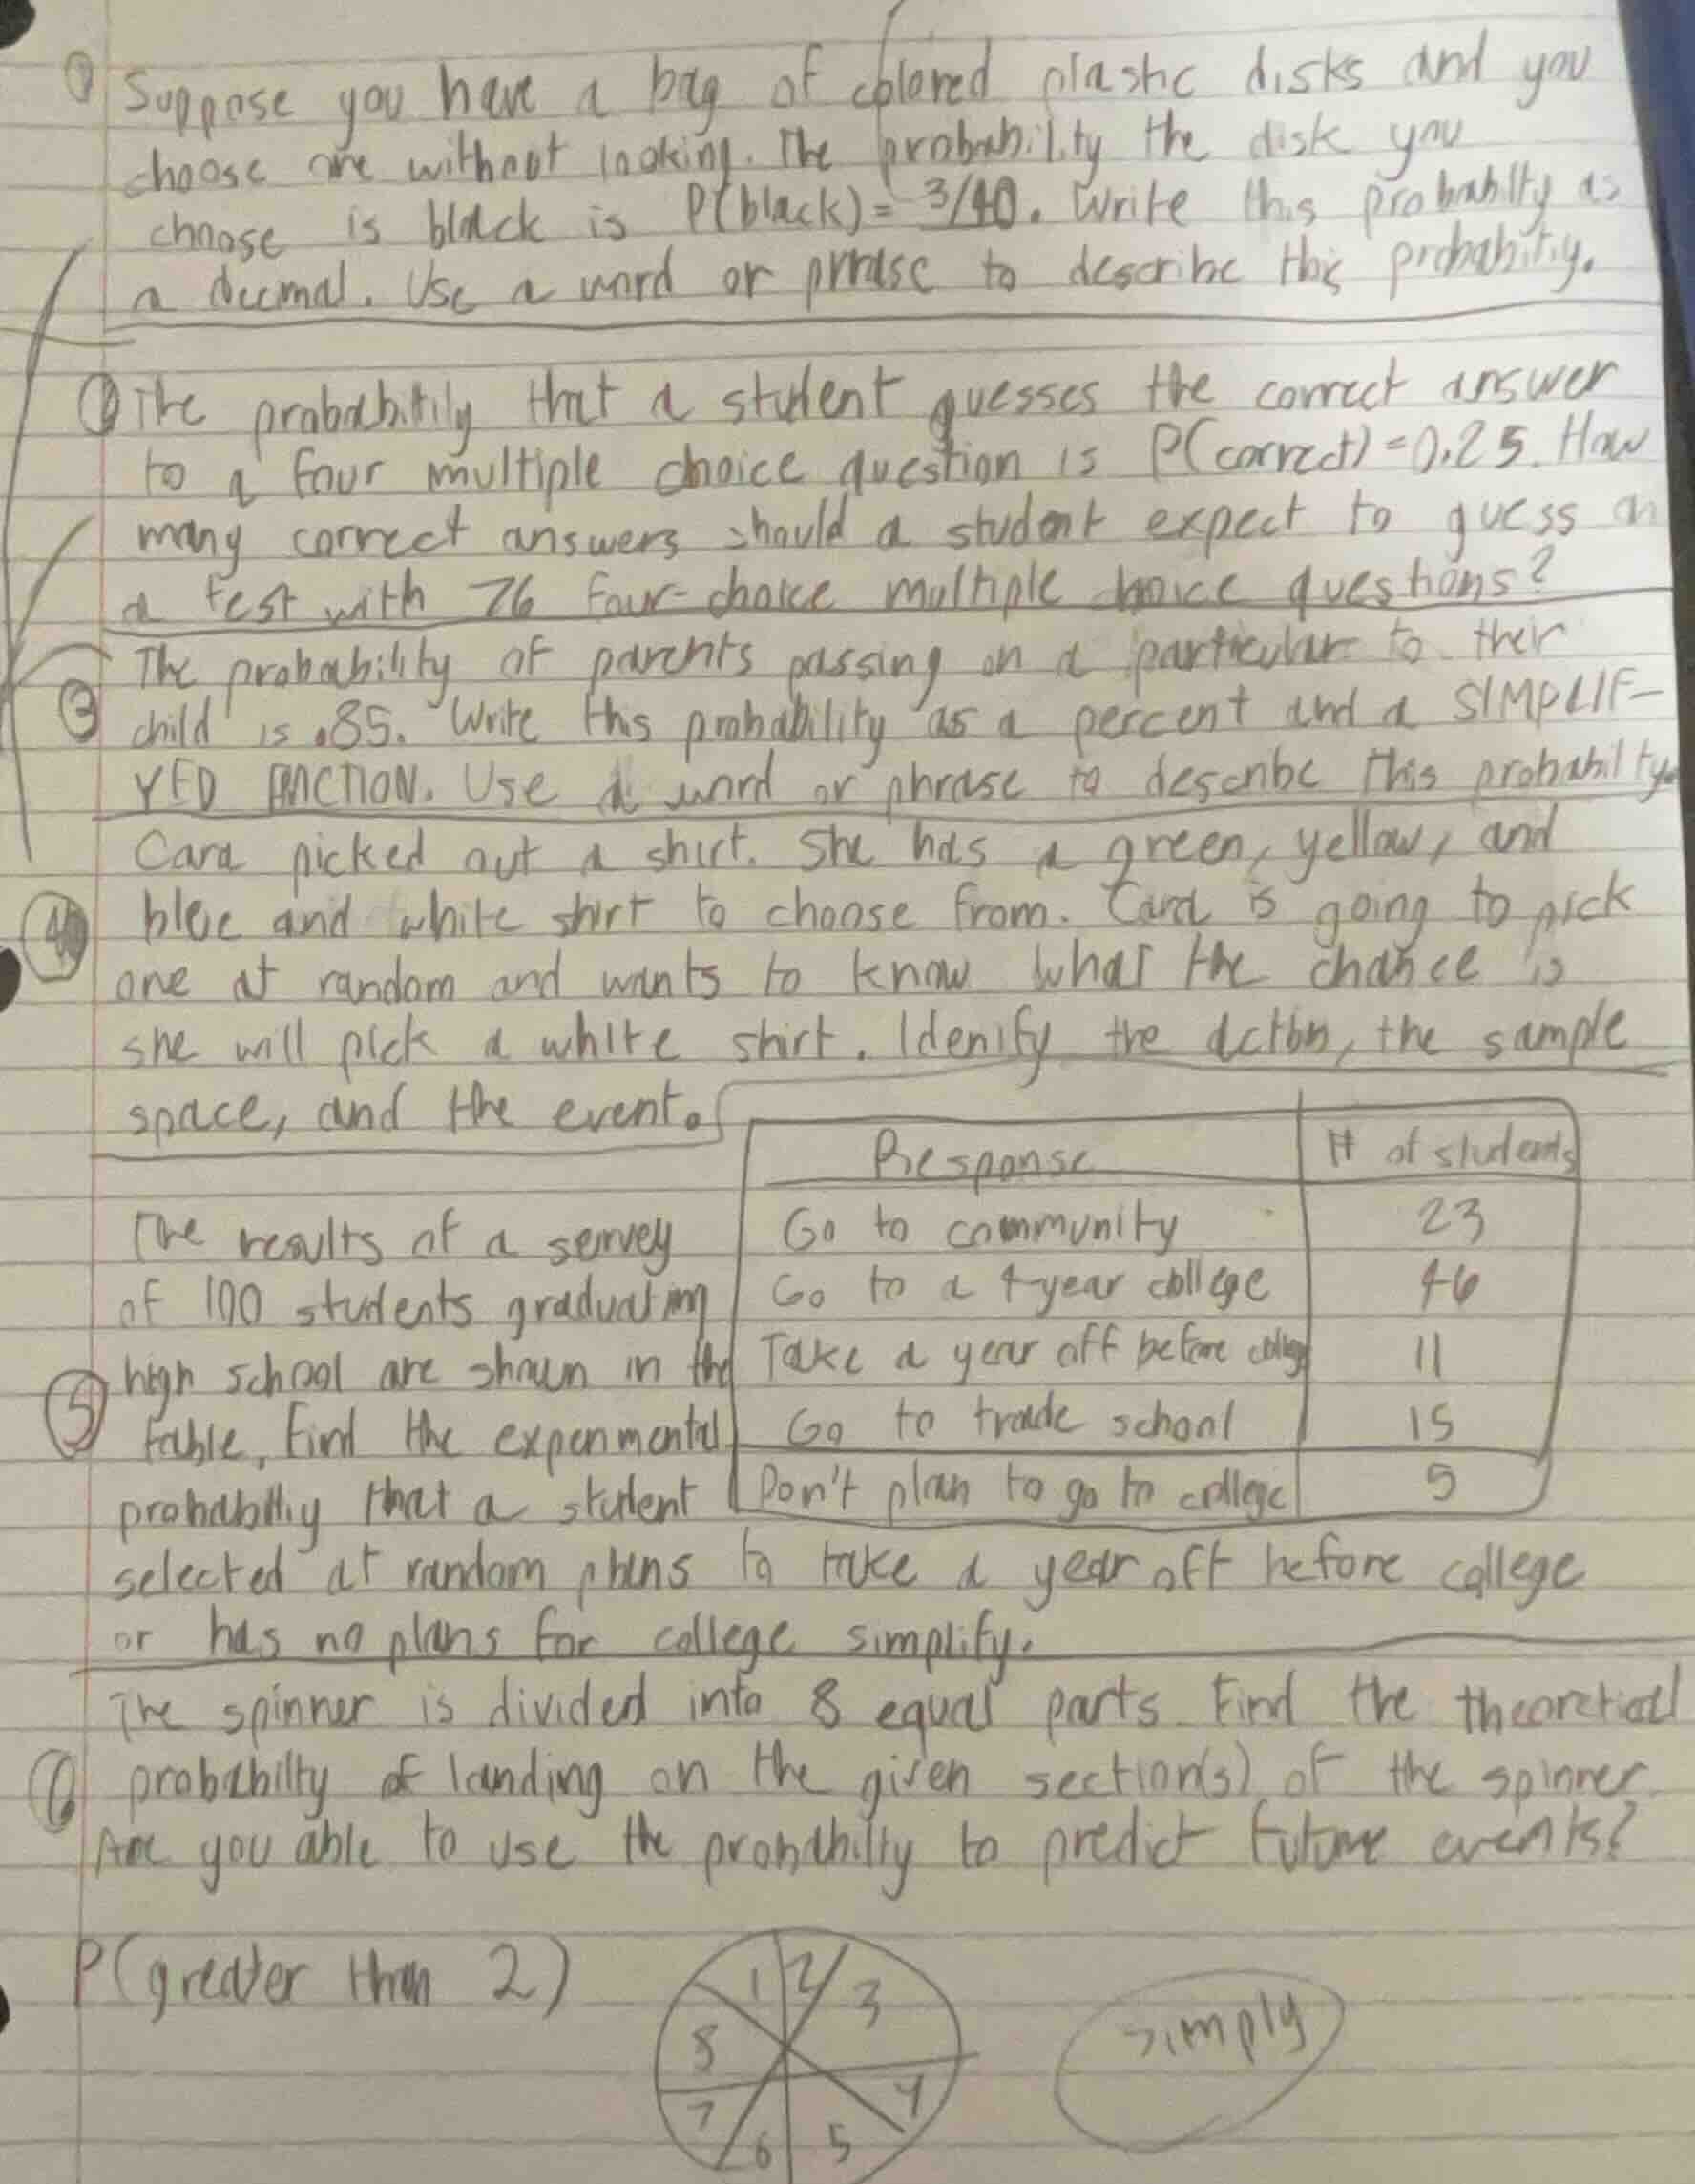 ① Suppose you have a bag of colored plastic disks and you
choose one without looking. The probability the disk you
choose is black is P(black) = 3/40. Write this probabilty as
a decimal. Use a word or phrase to describe this probability.
① The probabitily that a student guesses the correct answer
to a four multiple choice question is P(correct) = 0.25. How
many correct answers should a student expect to guess on
a test with 76 four-choice multiple choice questions?
The probability of parents passing on a particular to their
③ child is .85. Write this probability as a percent and a SIMPLIF-
YED FRACTION. Use a word or phrase to describe this probabilty.
Cara picked out a shirt. She has a green, yellow, and
④ blue and white shirt to choose from. Cara is going to pick
one at random and wants to know what the chance is
she will pick a white shirt. Idenify the action, the sample
space, and the event.
Response # of students
Go to community 23
Go to a 4-year college 46
Take a year off before college 11
Go to trade school 15
Don't plan to go to college 5
The results of a servey
of 100 students graduating
high school are shown in the
⑤ table, Find the experimental
probabiltiy that a student
selected at random plans to take a year off before college
or has no plans for college simplify.
The spinner is divided into 8 equal parts. Find the theoretical
⑥ probabilty of landing on the given section(s) of the spinner.
Are you able to use the probabilty to predict future events?
P(greater than 2)
1 2 3
8
7 6 5 4
simply